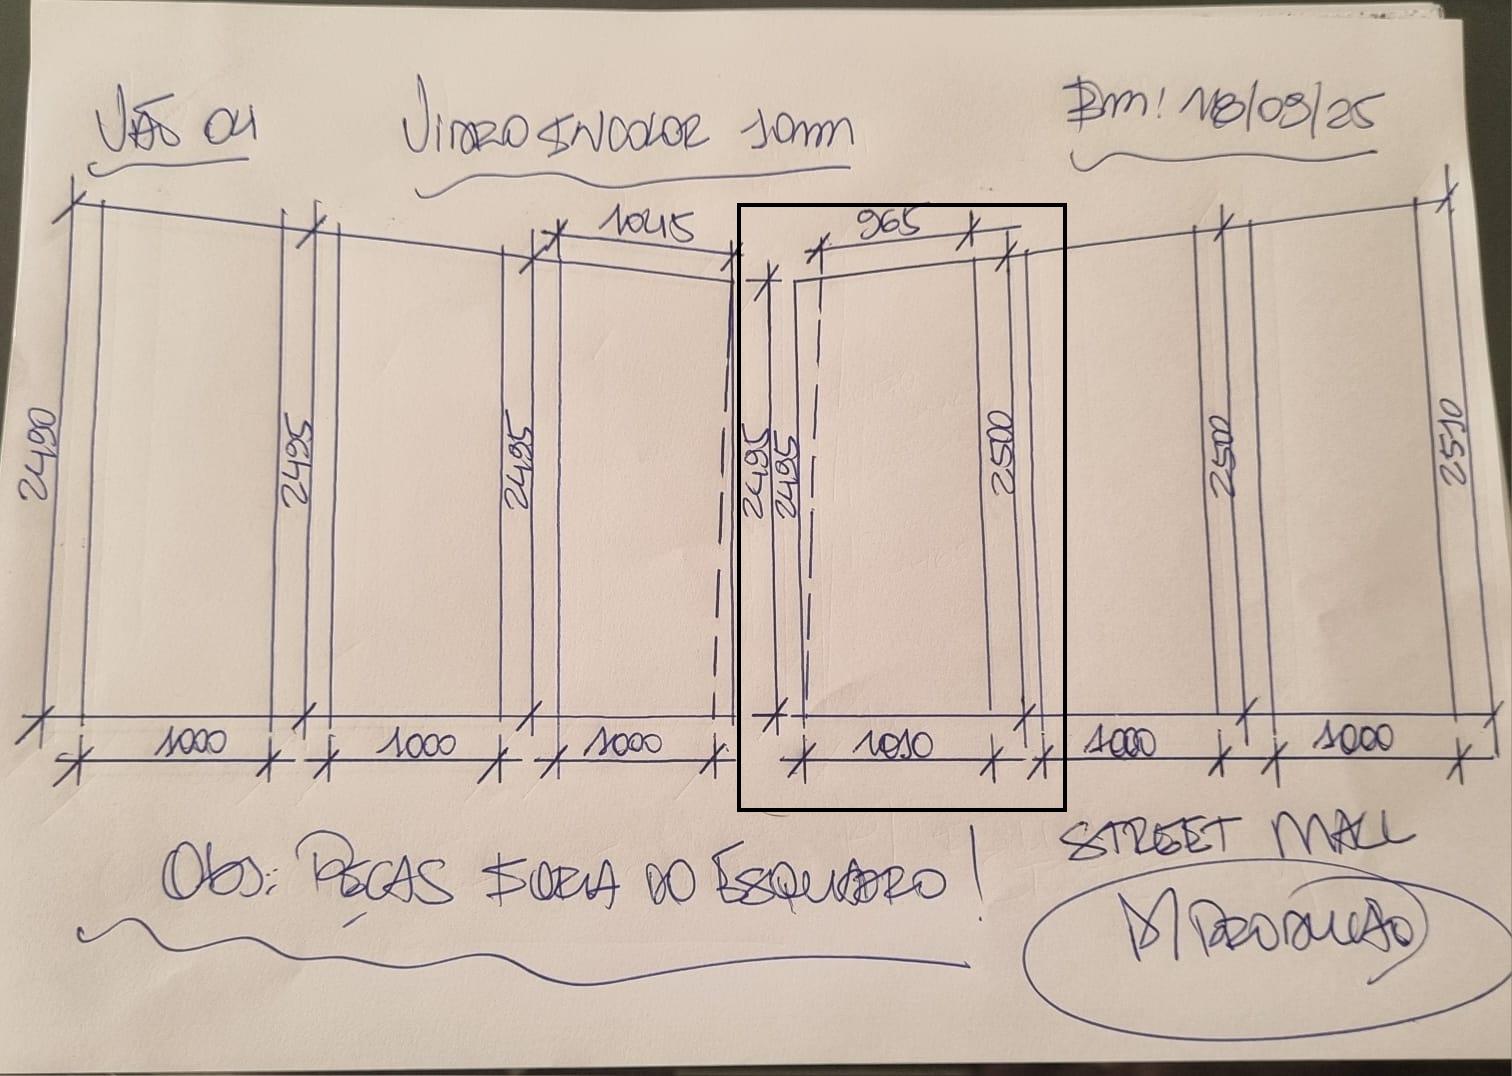 VÃO 04
VIDRO INCOLOR 10mm
Em: 18/09/25
1045
965
2490
2495
2495
2495
2495
2500
2500
2510
1000
1000
1000
1010
1000
1000
Obs: PEÇAS FORA DO ESQUADRO!
STREET MALL
P/ PRODUÇÃO